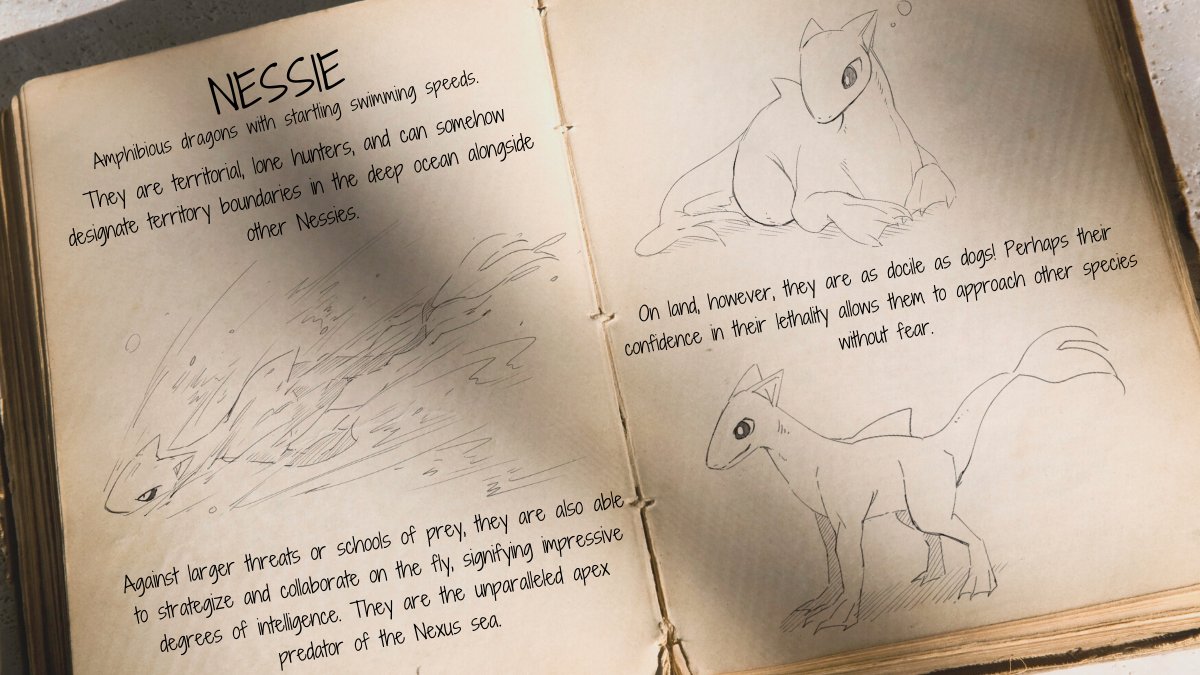 NESSIE
Amphibious dragons with startling swimming speeds.
They are territorial, lone hunters, and can somehow
designate territory boundaries in the deep ocean alongside
other Nessies.
Against larger threats or schools of prey, they are also able
to strategize and collaborate on the fly, signifying impressive
degrees of intelligence. They are the unparalleled apex
predator of the Nexus sea.
On land, however, they are as docile as dogs! Perhaps their
confidence in their lethality allows them to approach other species
without fear.